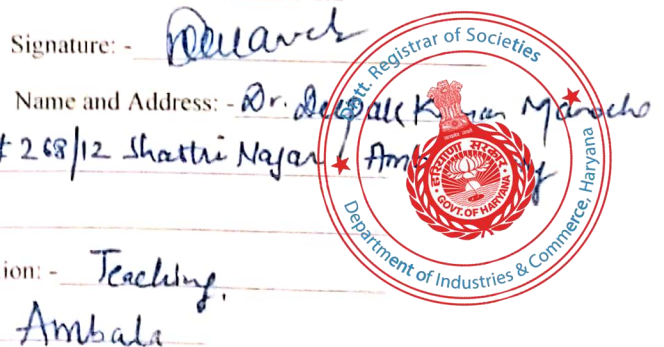 Signature: -
Name and Address: - Dr. Deepak Kumar Manocha
# 268/12 Shastri Nagar, Ambala City
ion: - Teaching,
Ambala
tt. Registrar of Societies
Department of Industries & Commerce, Haryana
हरियाणा सरकार
GOVT. OF HARYANA